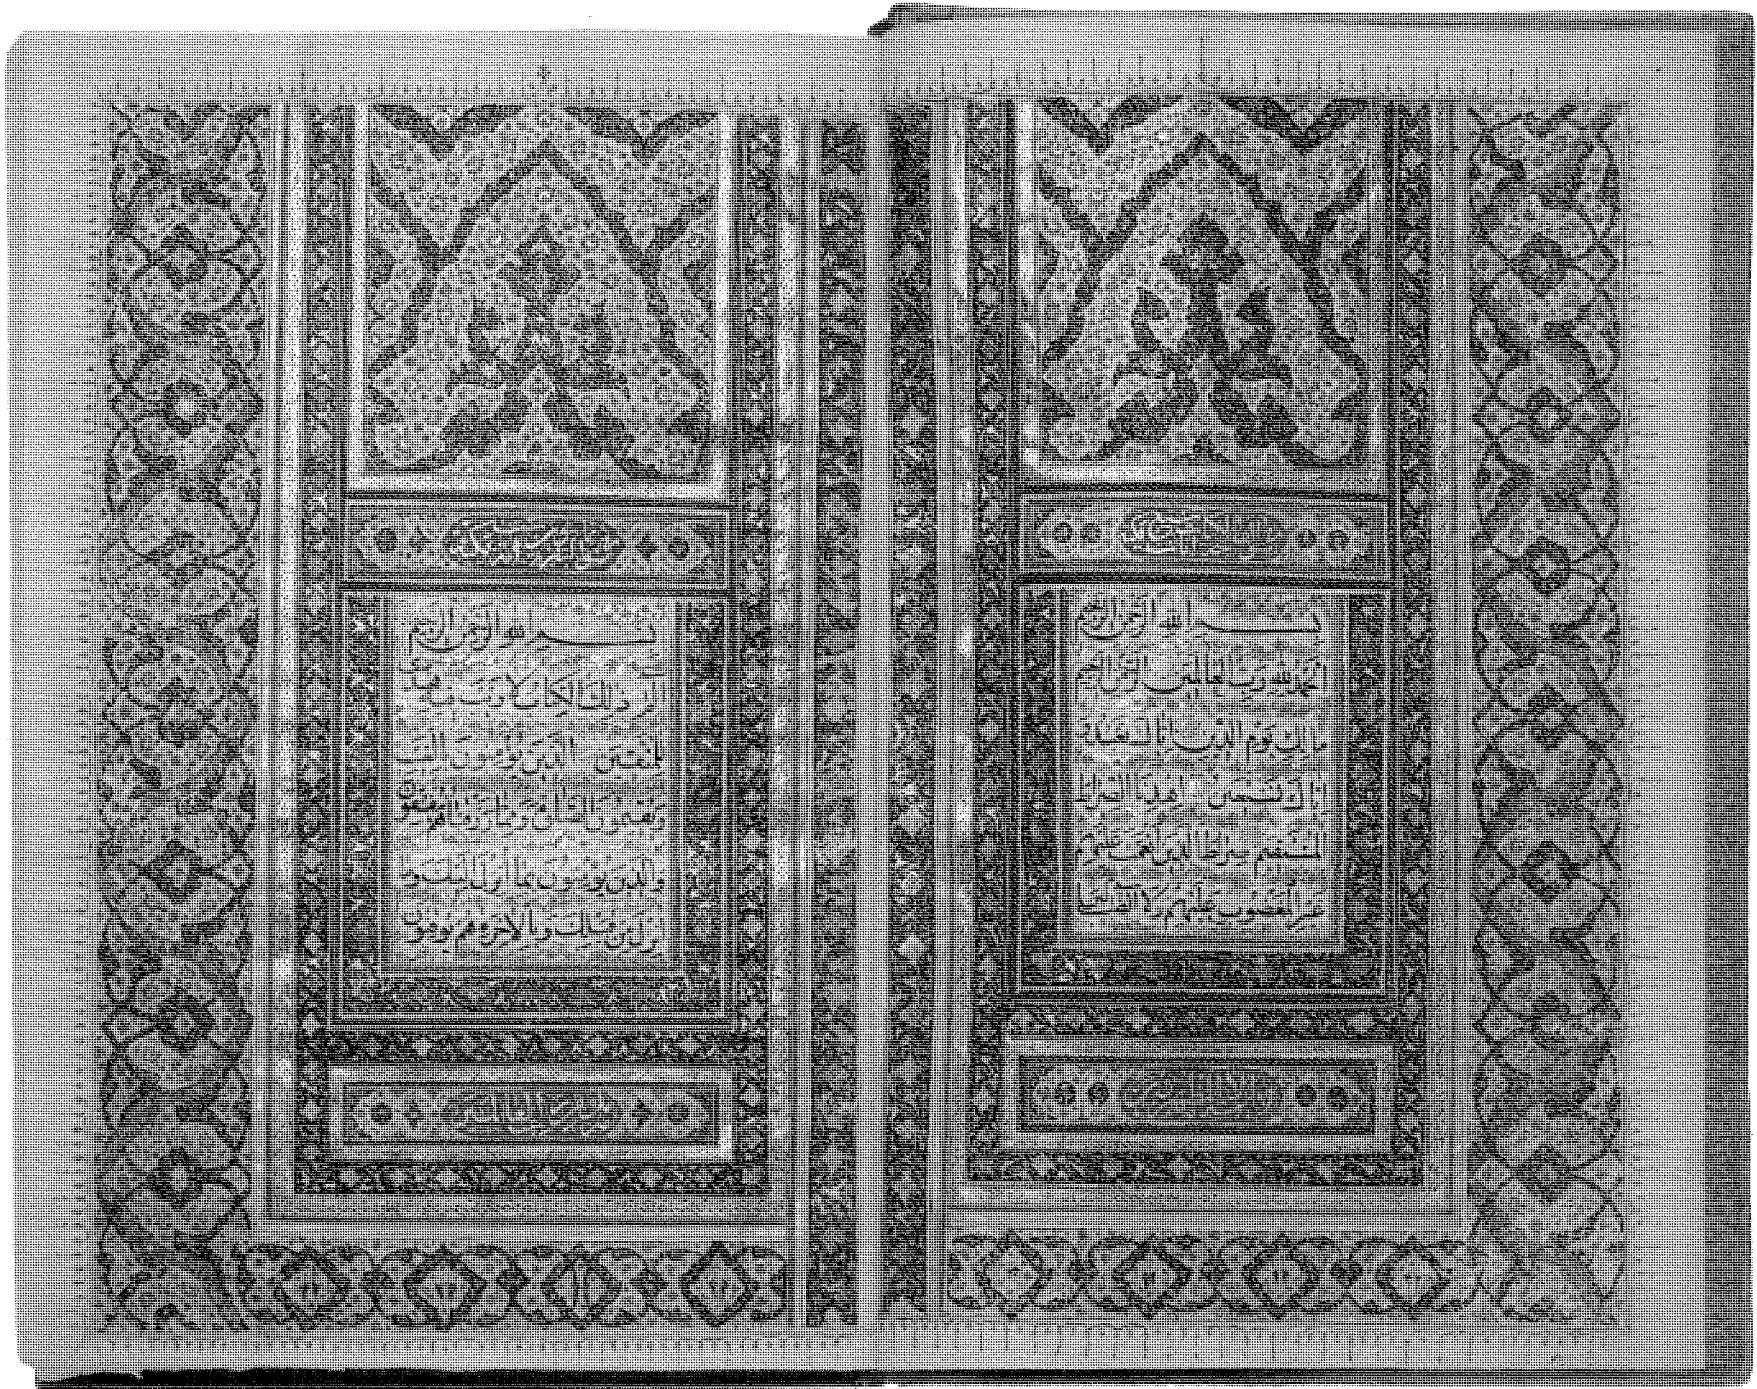 بسم الله الرحمن الرحيم
الحمد لله رب العالمين الرحمن الرحيم
مالك يوم الدين اياك نعبد و
اياك نستعين اهدنا الصراط
المستقيم صراط الذين انعمت عليهم
غير المغضوب عليهم ولا الضالين
بسم الله الرحمن الرحيم
الم ذلك الكتاب لا ريب فيه هدى
للمتقين الذين يؤمنون بالغيب
ويقيمون الصلوة ومما رزقناهم ينفقون
والذين يؤمنون بما انزل اليك وما
انزل من قبلك وبالاخرة هم يوقنون